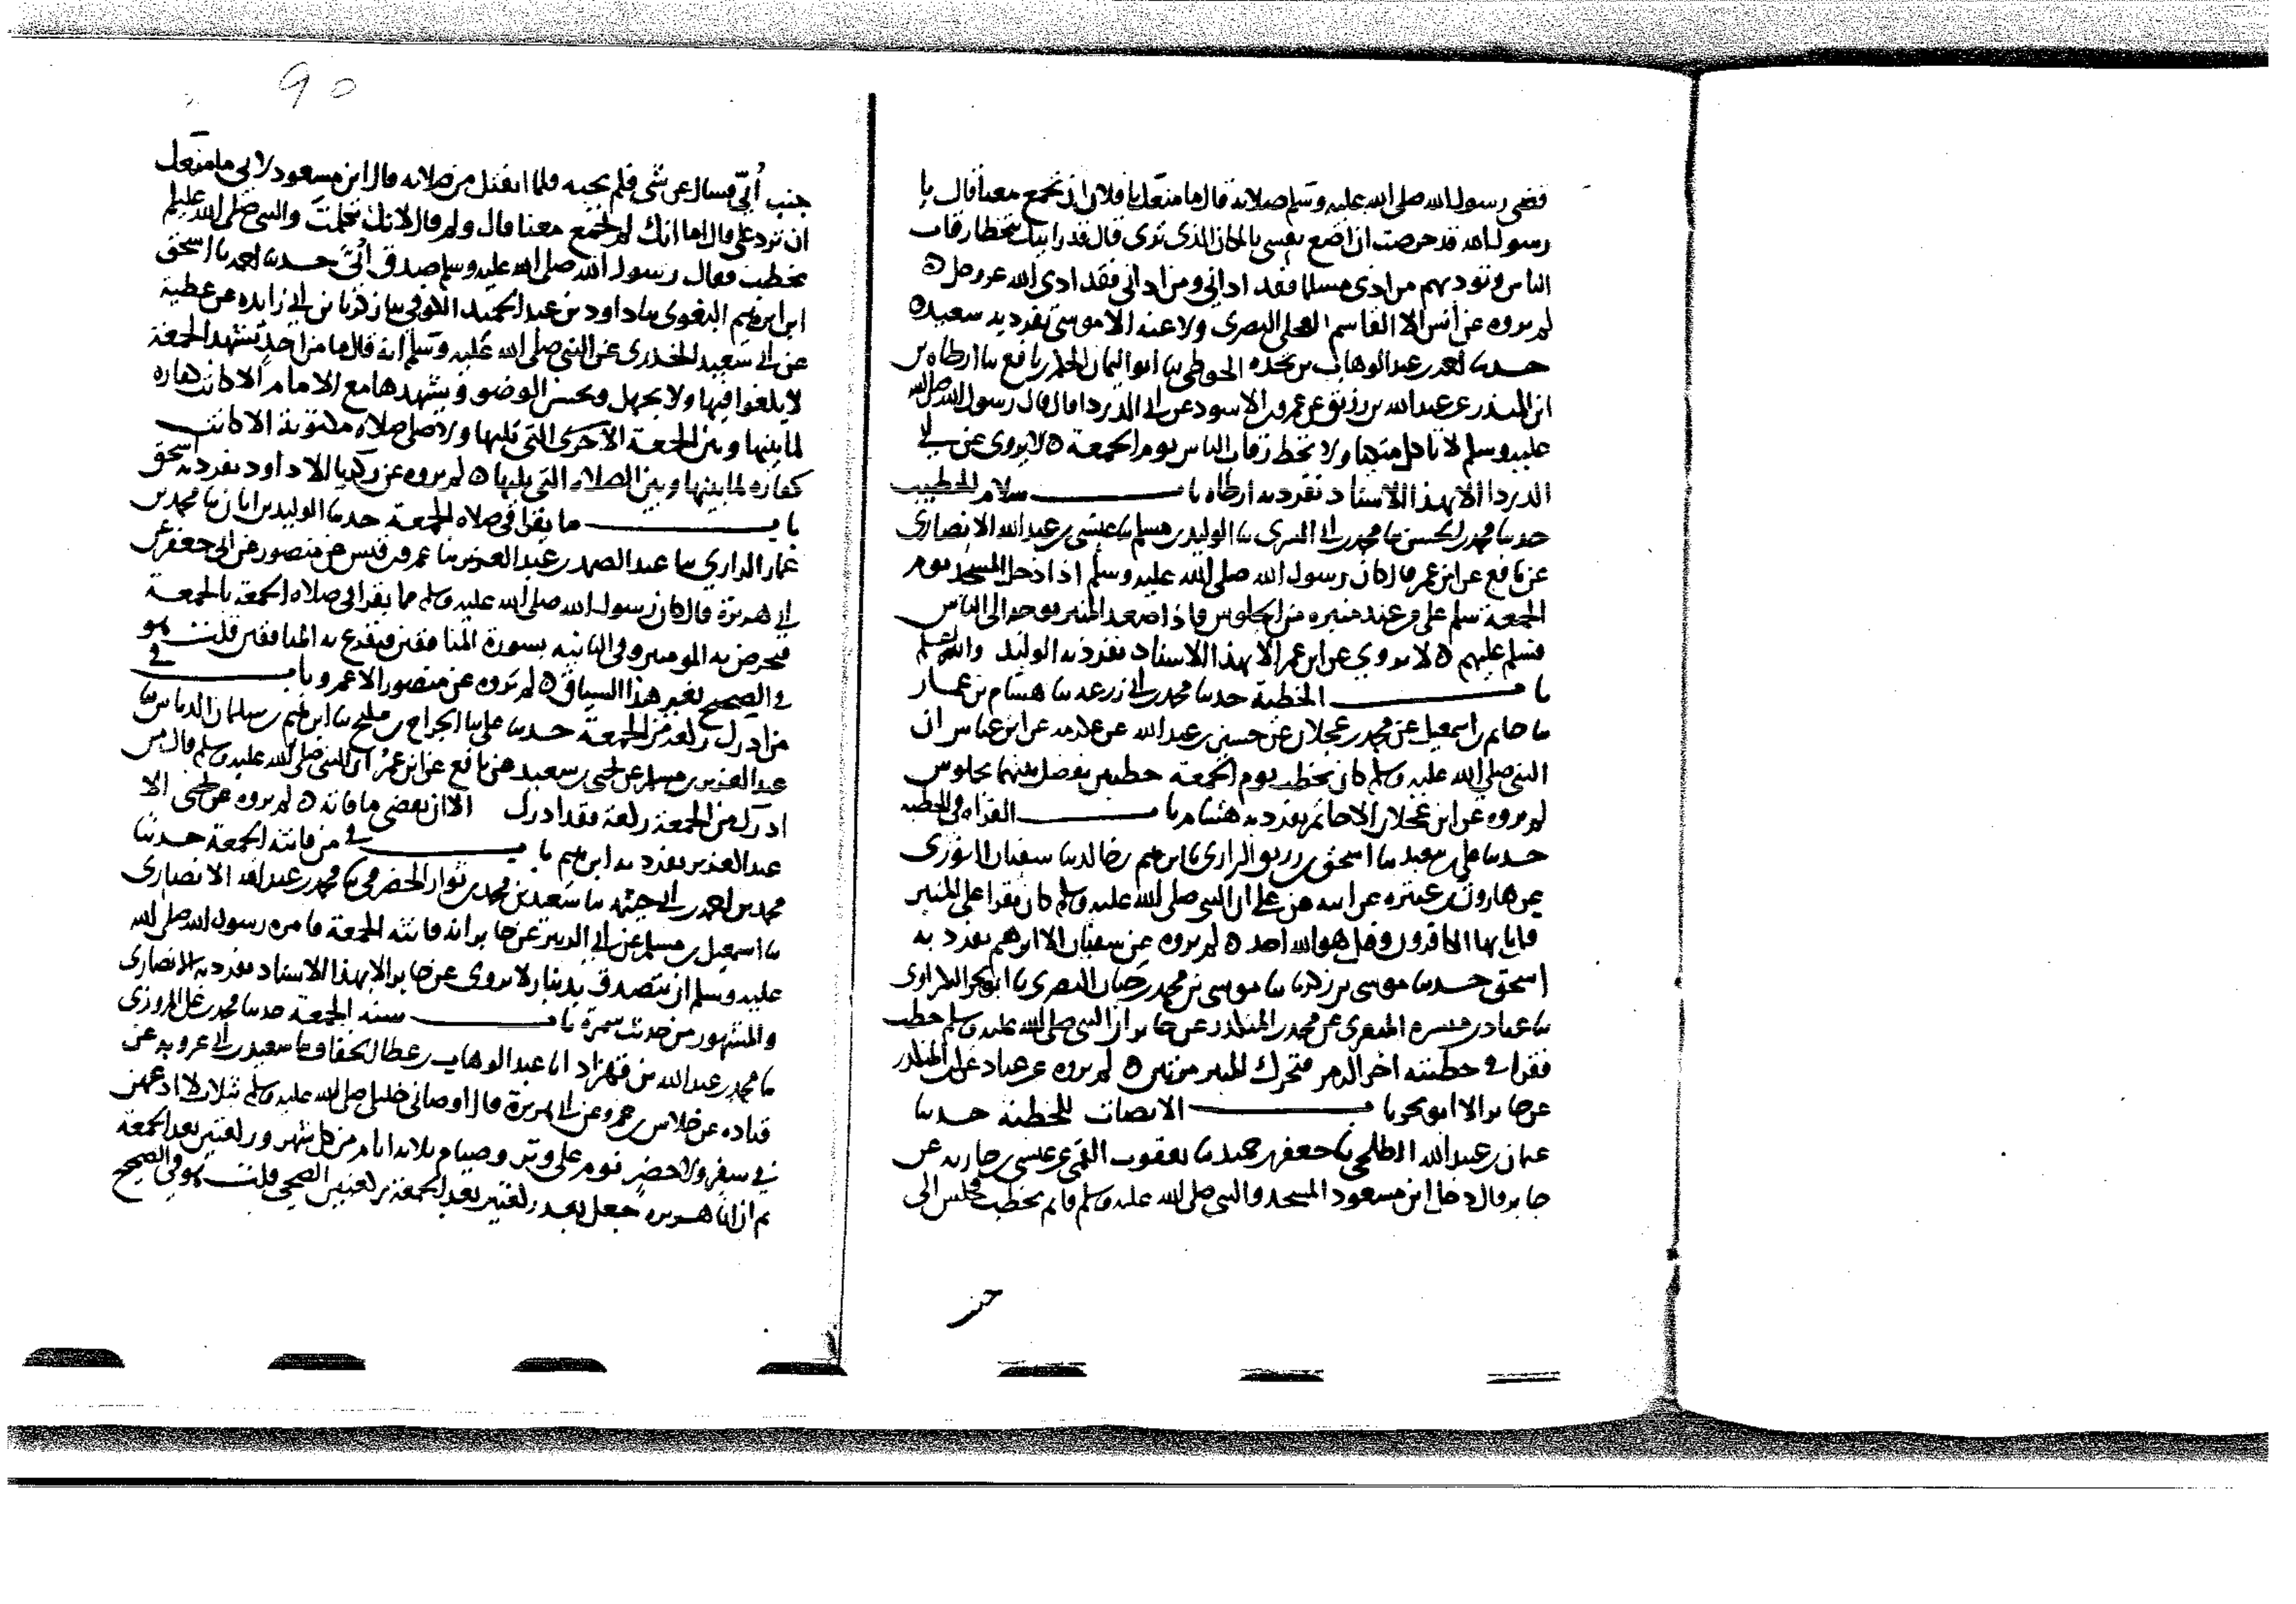 قضى رسول الله صلى الله عليه وسلم صلاته قال ما منعك يا فلان ان تجمع معنا قال يا
رسول الله قد حرصت ان اضع نفسي بالمكان الذي ترى قال قد رايتك تخطا رقاب
الناس وتوذيهم من اذى مسلما فقد اذاني ومن اذاني فقد اذى الله عز وجل ه
لم يروه عن انس الا القاسم العجلي البصرى ولا عنه الا موسى تفرد به سعيد ه
حدثنا احمد بن عبد الوهاب بن نجده الحوطي ثنا ابو اليمان الحكم بن نافع ثنا ارطاه بن
المنذر عن عبد الله بن رزيق عن عمرو بن الاسود عن ابي الدردا قال قال رسول الله صلى الله
عليه وسلم لا تاكل متكيا ولا تخط رقاب الناس يوم الجمعة ه لا يروى عن ابي
الدردا الا بهذا الاسناد تفرد به ارطاه باب سلام الخطيب
حدثنا محمد بن الحسن ثنا محمد بن ابي السرى ثنا الوليد بن مسلم ثنا عيسى بن عبد الله الانصارى
عن نافع عن ابن عمر قال كان رسول الله صلى الله عليه وسلم اذا دخل المسجد يوم
الجمعة سلم على من عند منبره من الجلوس فاذا صعد المنبر توجه الى الناس
فسلم عليهم ه لا يروي عن ابن عمر الا بهذا الاسناد تفرد به الوليد والله اعلم
باب الخطبة حدثنا محمد بن ابي زرعه ثنا هشام بن عمار
ثنا حاتم بن اسمعيل عن محمد بن عجلان عن حسين بن عبد الله عن عكرمه عن ابن عباس ان
النبي صلى الله عليه وسلم كان يخطب يوم الجمعة خطبتين يفصل بينهما بجلوس
لم يروه عن ابن عجلان الا حاتم تفرد به هشام باب القراه في الخطبه
حدثنا علي بن سعيد ثنا اسحق بن زريق الرازى ثنا ابرهيم بن خالد ثنا سفيان الثوزى
عن هارون بن عنتره عن ابيه عن علي ان النبي صلى الله عليه وسلم كان يقرا على المنبر
قل يا يها الكافرون وقل هو الله احد ه لم يروه عن سفيان الا ابرهيم تفرد به
اسحق حدثنا موسى بن زكريا ثنا موسى بن محمد بن حيان البصرى ثنا ابو بحر البكراوى
ثنا عباد بن ميسره المنقرى عن محمد بن المنكدر عن جابر ان النبي صلى الله عليه وسلم خطب
فقرا في خطبته اخر الزمر فتحرك المنبر مرتين ه لم يروه عن عباد عن ابن المنكدر
عن جابر الا ابو بحر باب الانصات للخطبة حدثنا
عثمان بن عبيد الله الطلحي ثنا جعفر بن حميد ثنا يعقوب القمي عن عيسى بن جاريه عن
جابر قال دخل ابن مسعود المسجد والنبي صلى الله عليه وسلم قائم يخطب فجلس الى
جنب
90
جنب اُبيّ فسال عن شي فلم يجبه فلما انفتل من صلاته قال ابن مسعود لابي ما منعك
ان ترد علي قال اما انك لم تجمع معنا قال ولم قال لانك تكلمت والنبي صلى الله عليه وسلم
يخطب فقال رسول الله صلى الله عليه وسلم صدق اُبيّ حدثنا احمد ثنا اسحق
ابن ابرهيم البغوى ثنا داود بن عبد الحميد الكوفي ثنا زكريا بن ابي زايده عن عطية
عن ابي سعيد الخدرى عن النبي صلى الله عليه وسلم انه قال ما من احد يشهد الجمعة
لا يلغوا فيها ولا يجهل ويحسن الوضو ويشهدها مع الامام الا كانت كفاره
لما بينها وبين الجمعة الاخرى التي تليها ولا صلى صلاه مكتوبة الا كانت
كفاره لما بينها وبين الصلاه التي يليها ه لم يروه عن زكريا الا داود تفرد به اسحق
باب ما يقرا في صلاه الجمعة حدثنا الوليد بن ابان ثنا محمد بن
عمار الرازي ثنا عبد الصمد بن عبد العزيز ثنا عمرو بن قيس عن منصور عن ابي جعفر عن
ابي هريرة قال كان رسول الله صلى الله عليه وسلم مما يقرا في صلاه الجمعة بالجمعة
فيحرض به المومنين وفي الثانيه بسورة المنافقين فيقرع به المنافقين قلت هو
في الصحيح بغير هذا السياق ه لم يروه عن منصور الا عمرو باب في
من ادرك ركعة من الجمعة حدثنا علي ثنا الجراح بن مليح ثنا ابرهيم بن سليمان الدباس ثنا
عبد العزيز بن مسلم عن يحيى بن سعيد عن نافع عن ابن عمر ان النبي صلى الله عليه وسلم قال من
ادرك من الجمعة ركعة فقد ادرك الا ان يقضى ما فاته ه لم يروه عن يحيى الا
عبد العزيز تفرد به ابرهيم باب في من فاتته الجمعة حدثنا
محمد بن احمد بن ابي خيثمه ثنا سعيد بن محمد بن ثواب الحضرمي ثنا محمد بن عبد الله الانصارى
ثنا اسمعيل بن مسلم عن ابي الزبير عن جابر انه فاتته الجمعة فامره رسول الله صلى الله
عليه وسلم ان يتصدق بدينار لا يروى عن جابر الا بهذا الاسناد تفرد به الانصارى
والمشهور من حديث سمرة باب سنة الجمعة حدثنا محمد بن علي المروزى
ثنا محمد بن عبد الله بن قهزاد انا عبد الوهاب بن عطا الخفاف ثنا سعيد بن ابي عروبه عن
قتاده عن خلاس بن عمرو عن ابي هريرة قال اوصاني خليلي صلى الله عليه وسلم بثلاث لا ادعهن
في سفر ولا حضر نوم على وتر وصيام ثلاثه ايام من كل شهر وركعتين بعد الجمعة
ثم ان ابا هريره جعل بعد ركعتين بعد الجمعة ركعتين الضحى قلت هو في الصحيح